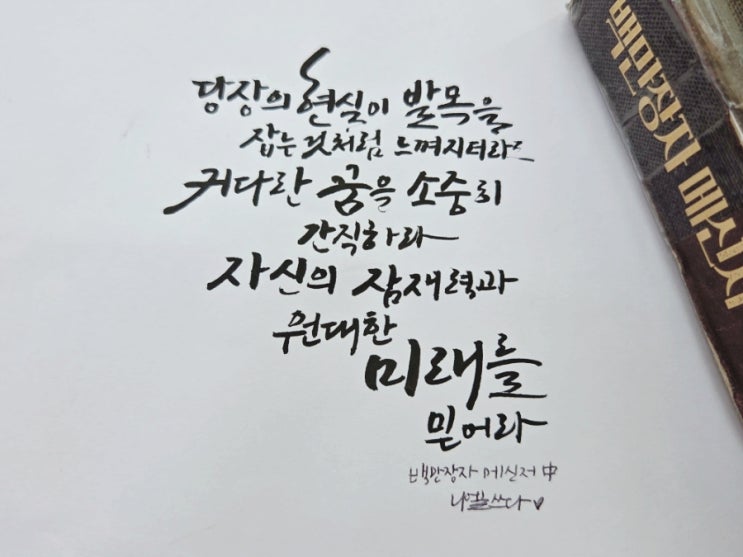 당장의 현실이 발목을
잡는 것처럼 느껴지더라도
커다란 꿈을 소중히
간직하라
자신의 잠재력과
원대한
미래를
믿어라
백만장자 메신저 中
쓰다♡
백만장자 메신저